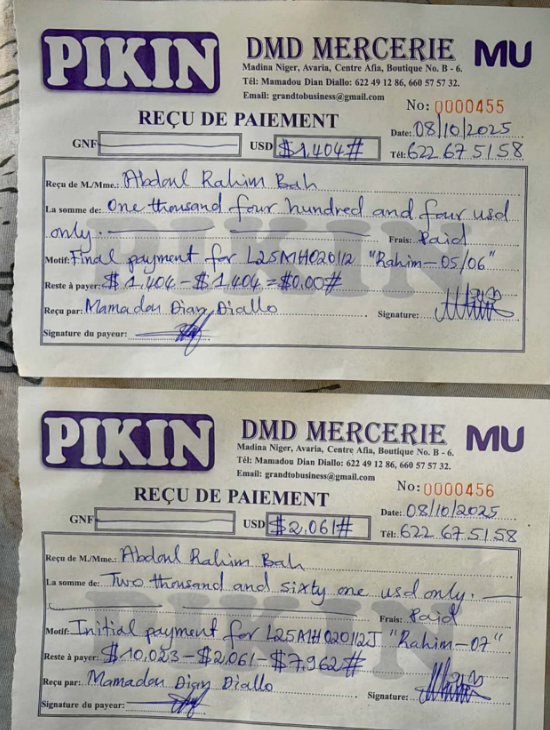 PIKIN
DMD MERCERIE MU
Madina Niger, Avaria, Centre Afia, Boutique No. B - 6.
Tél: Mamadou Dian Diallo: 622 49 12 86, 660 57 57 32.
Email: grandtobusiness@gmail.com
No: 0000455
REÇU DE PAIEMENT
Date: 08/10/2025
GNF USD $1,404#
Tél: 622 67 51 58
Reçu de M./Mme.: Abdoul Rahim Bah
La somme de: One thousand four hundred and four usd
only. Frais: Paid
Motif: Final payment for L25MH020112 "Rahim-05/06"
Reste à payer: $1,404 - $1,404 = $0.00#
Reçu par: Mamadou Dian Diallo Signature:
Signature du payeur:
PIKIN
PIKIN
DMD MERCERIE MU
Madina Niger, Avaria, Centre Afia, Boutique No. B - 6.
Tél: Mamadou Dian Diallo: 622 49 12 86, 660 57 57 32.
Email: grandtobusiness@gmail.com
No: 0000456
REÇU DE PAIEMENT
Date: 08/10/2025
GNF USD $2,061#
Tél: 622 67 51 58
Reçu de M./Mme.: Abdoul Rahim Bah
La somme de: Two thousand and sixty one usd only.
Frais: Paid
Motif: Initial payment for L25MH020112J "Rahim-07"
Reste à payer: $10,023 - $2,061 - $7,962#
Reçu par: Mamadou Dian Diallo Signature:
Signature du payeur:
PIKIN